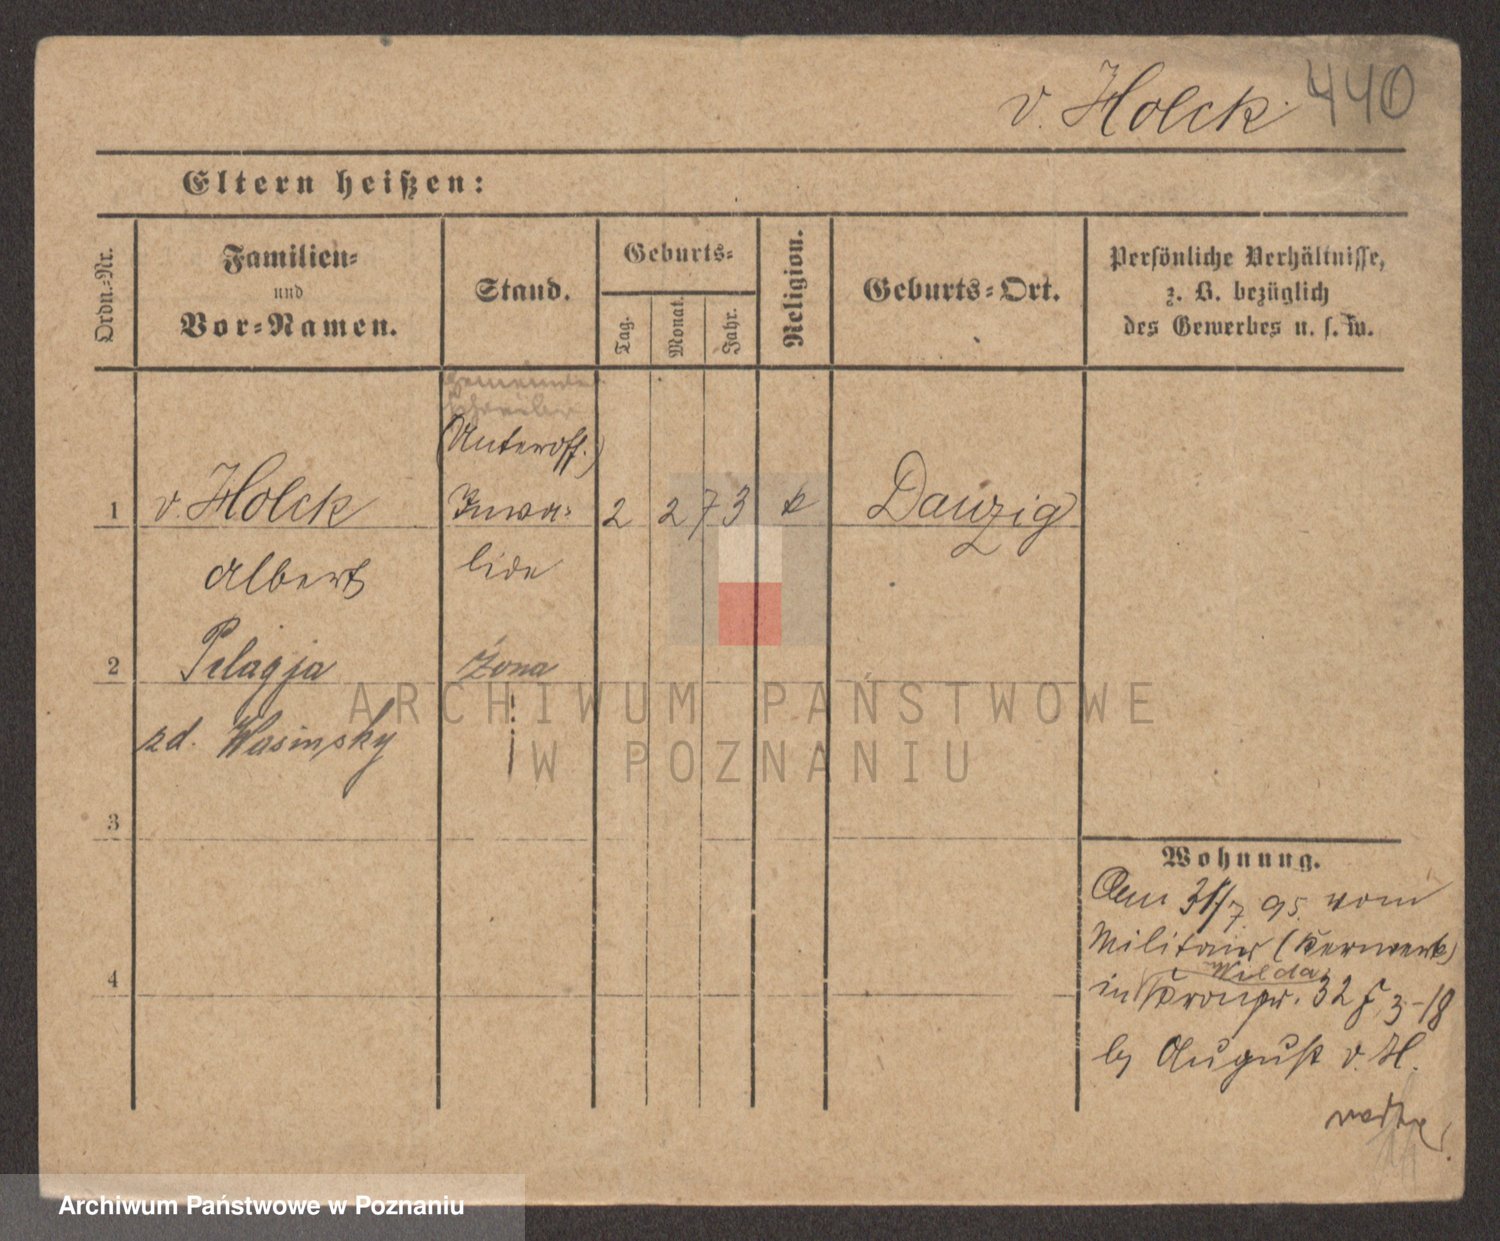 v. Holck. 440
Eltern heißen:
Ordn.-Nr.
Familien-
und
Vor-Namen.
Stand.
Geburts-
Tag.
Monat.
Jahr.
Religion.
Geburts-Ort.
Persönliche Verhältnisse,
z. B. bezüglich
des Gewerbes u. s. w.
Gemeinde
Schreiber
(Unteroff.)
1 v. Holck Inva- 2 2 73 k Danzig
Albert lide
2 Pelagja żona
zd. Wasinsky
3
4
Wohnung.
Am 31/7 95. vom
Militair (Kernwerk)
Wilda
in Kronpr. 32 3-18
by August v. H.
ARCHIWUM PAŃSTWOWE
W POZNANIU
Archiwum Państwowe w Poznaniu